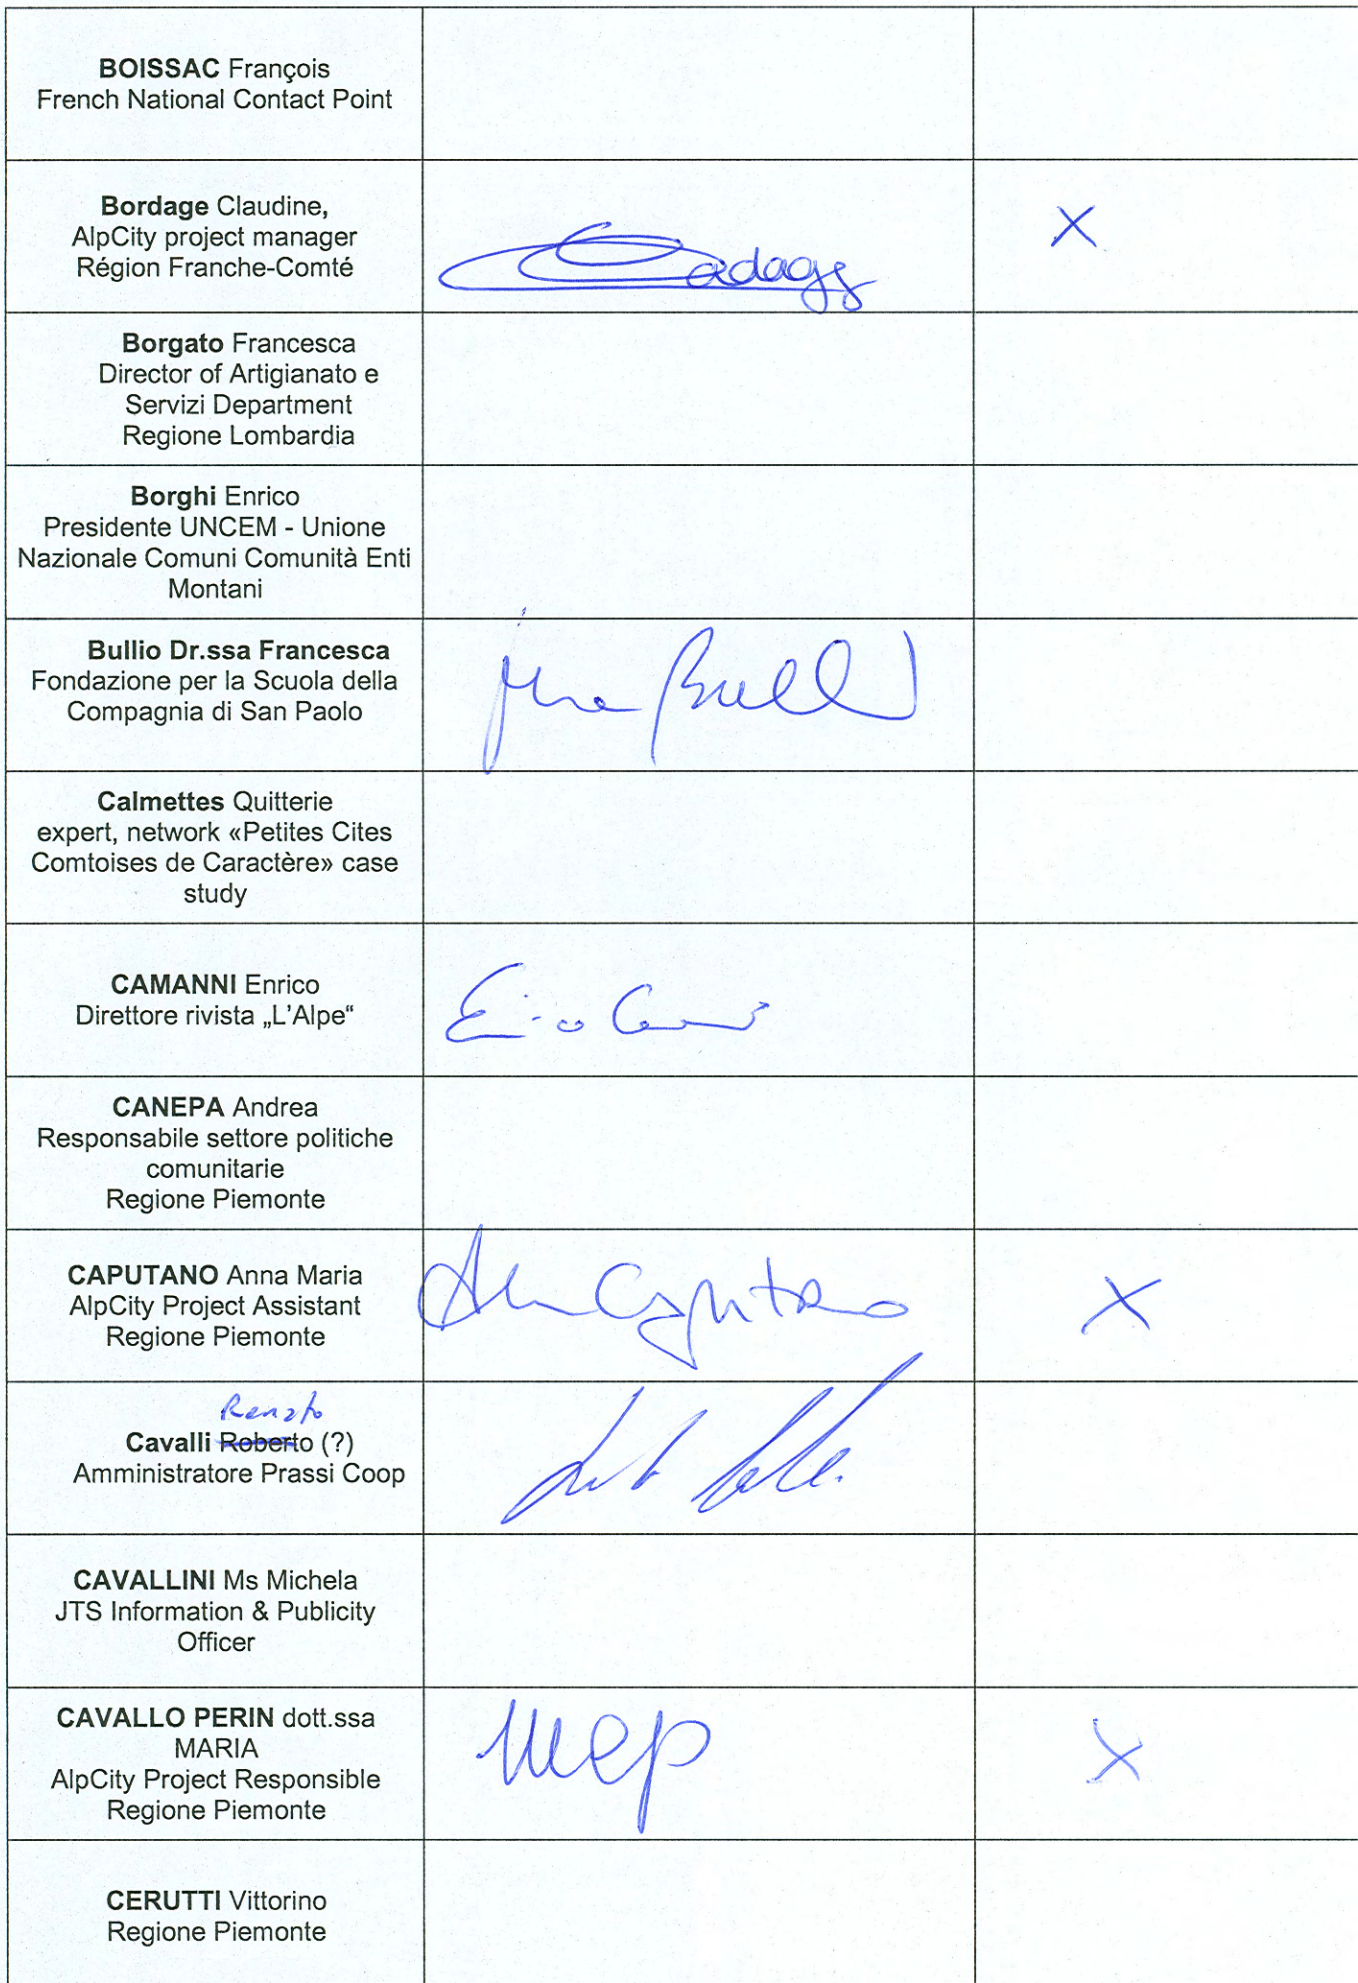 BOISSAC François
French National Contact Point
Bordage Claudine,
AlpCity project manager
Région Franche-Comté
X
Borgato Francesca
Director of Artigianato e
Servizi Department
Regione Lombardia
Borghi Enrico
Presidente UNCEM - Unione
Nazionale Comuni Comunità Enti
Montani
Bullio Dr.ssa Francesca
Fondazione per la Scuola della
Compagnia di San Paolo
Calmettes Quitterie
expert, network «Petites Cites
Comtoises de Caractère» case
study
CAMANNI Enrico
Direttore rivista „L'Alpe“
CANEPA Andrea
Responsabile settore politiche
comunitarie
Regione Piemonte
CAPUTANO Anna Maria
AlpCity Project Assistant
Regione Piemonte
X
Renato
Cavalli Roberto (?)
Amministratore Prassi Coop
CAVALLINI Ms Michela
JTS Information & Publicity
Officer
CAVALLO PERIN dott.ssa
MARIA
AlpCity Project Responsible
Regione Piemonte
X
CERUTTI Vittorino
Regione Piemonte